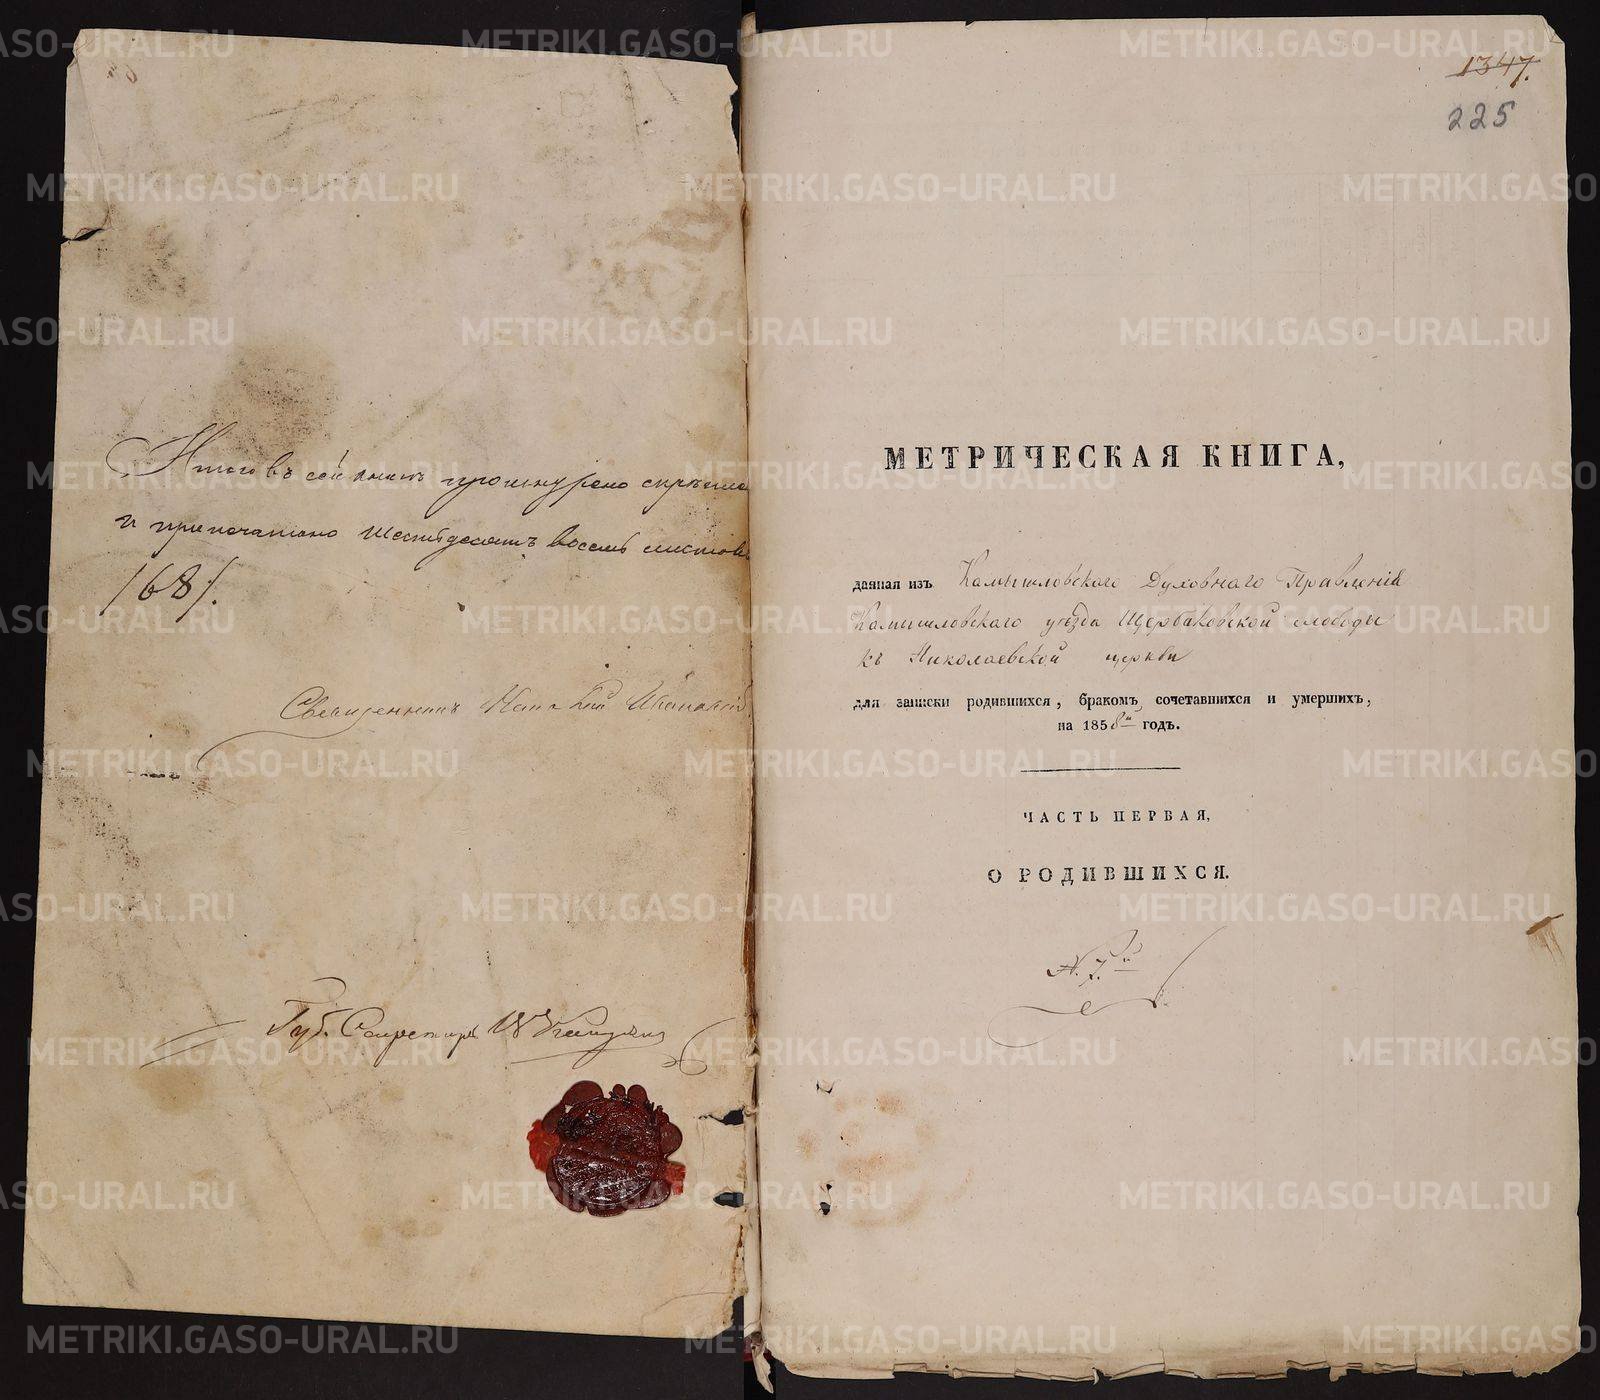 Итого въ сей книгѣ прошнурено скрѣпле
и припечатано шестьдесятъ восемь листовъ
/68/.
Священникъ
Губ. Секретарь
1347.
225
МЕТРИЧЕСКАЯ КНИГА,
данная изъ Камышловскаго Духовнаго Правленія
Камышловскаго уѣзда Щербаковской слободы
къ Николаевской церкви
для записки родившихся, бракомъ сочетавшихся и умершихъ,
на 1858й годъ.
ЧАСТЬ ПЕРВАЯ,
О РОДИВШИХСЯ.
N. 7й
METRIKI.GASO-URAL.RU